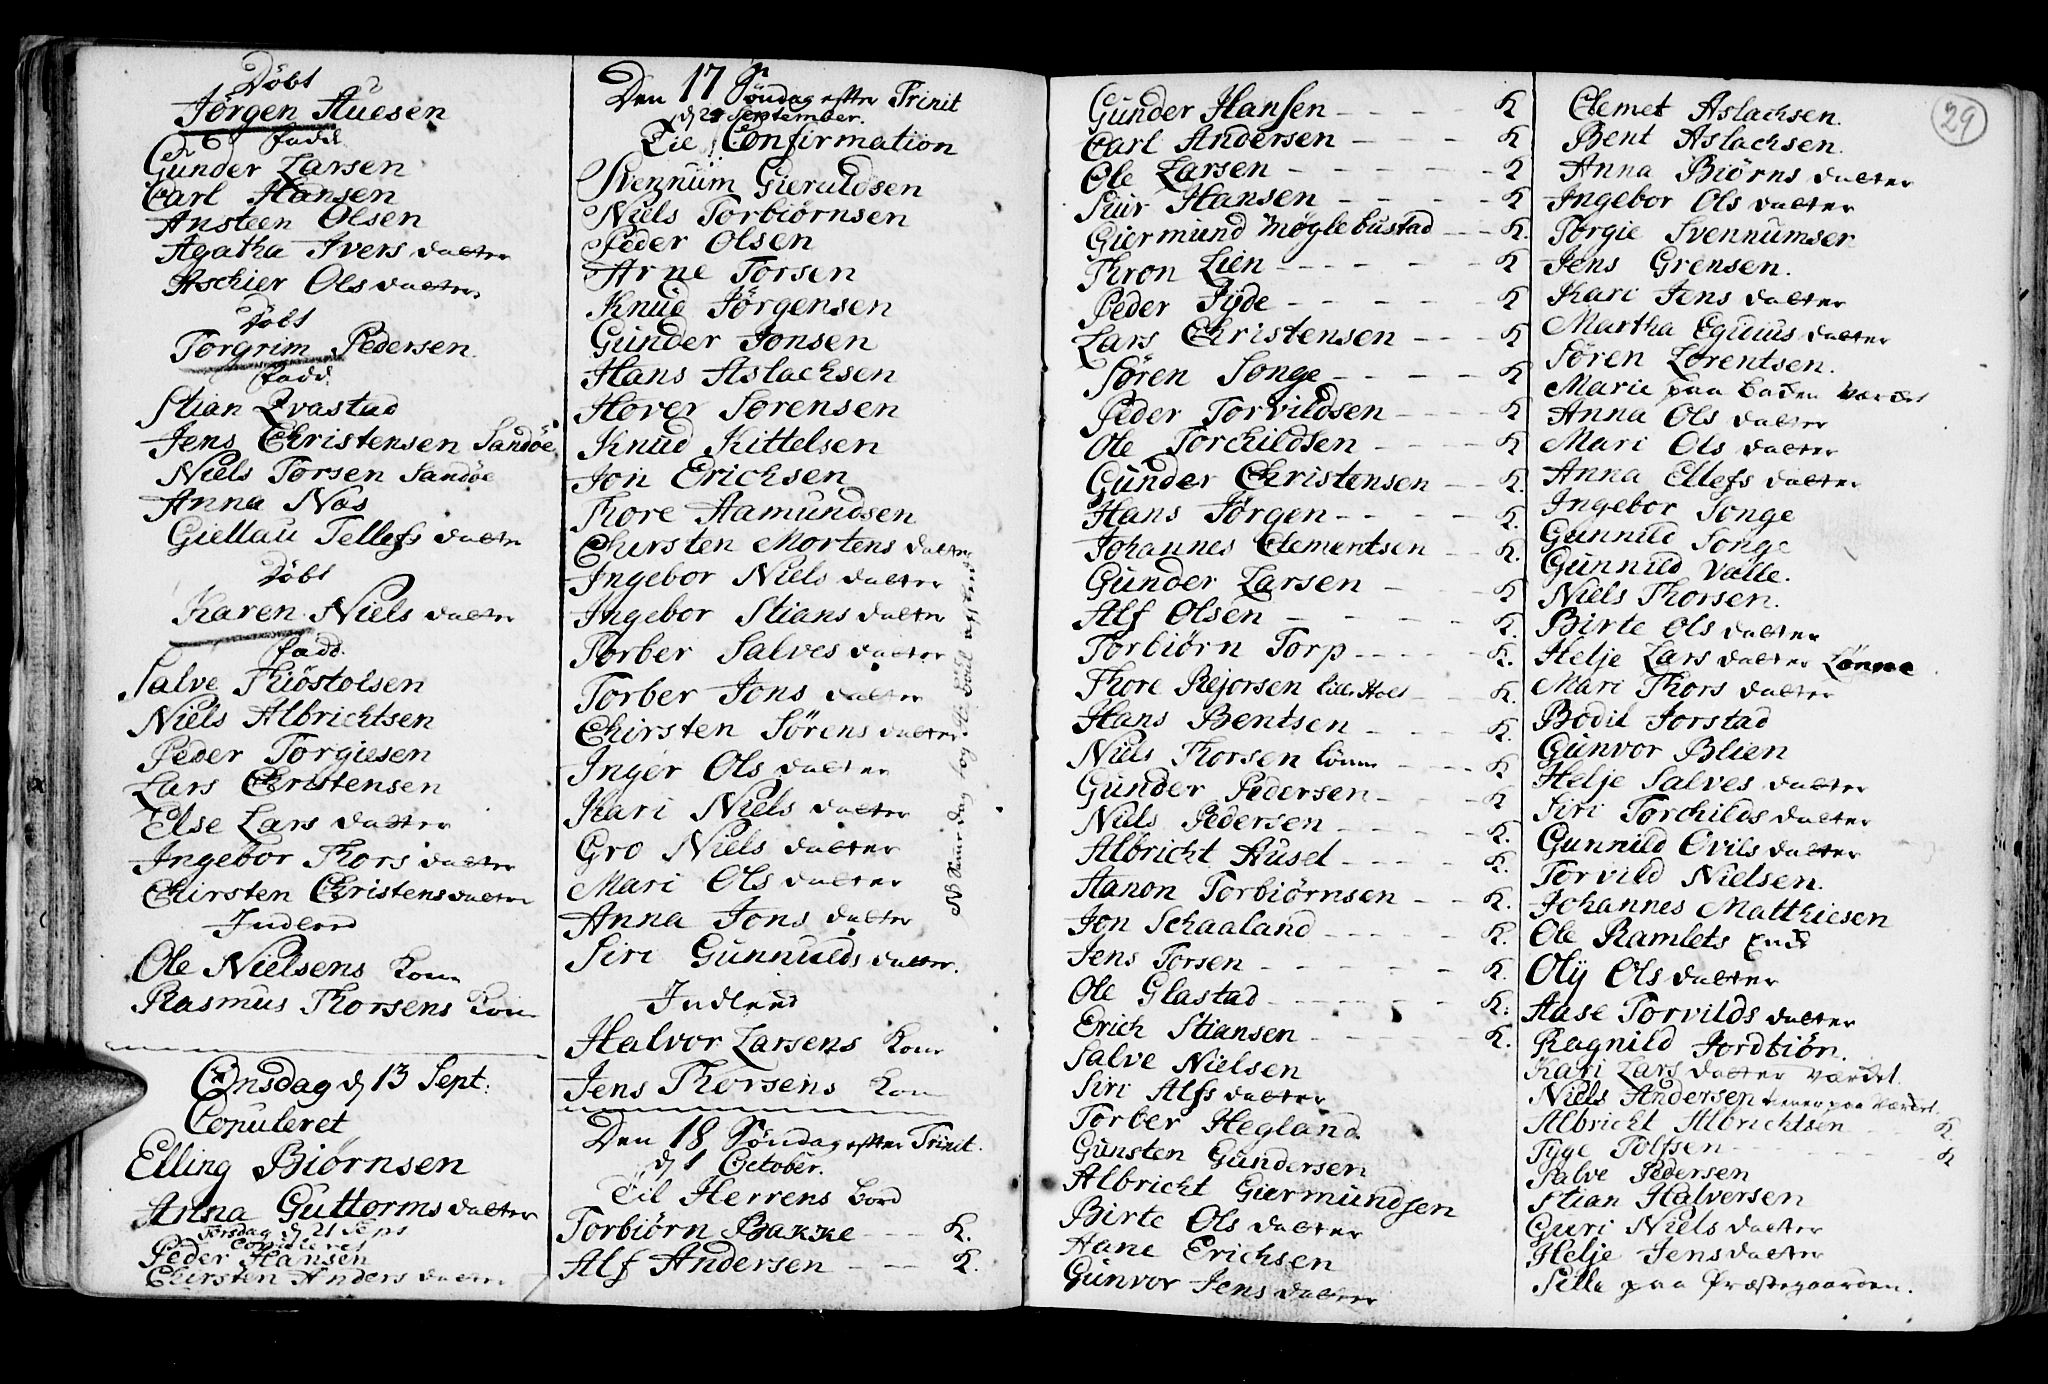 Döbt
Jörgen Auesen
fadd
Gunder Larsen
Carl Hansen
Ansteen Olsen
Agatha Ivers datter
Aschier Ols datter
Döbt
Torgrim Pedersen
fadd.
Stian Qvastad
Jens Christensen Sandöe
Niels Torsen Sandöe
Anna Nas
Giellau Tellefs datter
Döbt
Karen Niels datter
fadd.
Salve Kiöstolsen
Niels Albrichtsen
Peder Torgiesen
Lars Christensen
Else Lars datter
Ingebor Thors datter
Chirsten Christens datter
Indleed
Ole Nielsens Kone
Rasmus Thorsens Kone
Onsdag d 13 Sept:
Copuleret
Elling Biörnsen
Anna Guttorms datter
Torsdag d 21 Sept
Copuleret
Peder Hansen
Chirsten Anders datter
Den 17 Söndag efter Trinit
d 24 September.
Til Confirmation
Svennum Gieruldsen
Niels Torbiörnsen
Peder Olsen
Arne Torsen
Knud Jörgensen
Gunder Jonsen
Hans Aslachsen
Hover Sorensen
Knud Kittelsen
Jon Erichsen
Thore Aamundsen
Chirsten Mortens datter
Ingebor Niels datter
Ingebor Stians datter
Torber Salves datter
Torber Jons datter
Chirsten Sörens datter
Inger Ols datter
Kari Niels datter
Gro Niels datter
Mari Ols datter
Anna Jons datter
Siri Gunnulds datter.
Indleed
Halvor Larsens Kone
Jens Thorsens Kone
Den 18 Söndag efter Trinit.
d 1 October.
Til Herrens bord
Torbiörn Bakke - - - K.
Alf Andersen - - - K.
Gunder Hansen - - - K
Carl Andersen - - - K
Ole Larsen - - - K
Siur Hansen - - - K
Giermund Möglebustad - - - K.
Thron Lien - - - K
Peder Fyde - - - K
Lars Christensen - - - K
Sören Songe - - - K
Peder Torvildsen - - - K
Ole Torchildsen - - - K
Gunder Christensen - - K.
Hans Jörgen - - - K.
Johannes Clementsen - - K.
Gunder Larsen - - - K
Alf Olsen - - - K.
Torbiörn Torp - - - K.
Thore Rejorsen lille Hoel - - K.
Hans Bentsen - - - K.
Niels Thorsen lönne - - - K
Gunder Pedersen - - - K
Niels Pedersen - - - K.
Albricht Ausel - - - K.
Aanon Torbiörnsen - - K.
Jon Schaaland - - - K.
Jens Torsen - - - K.
Ole Glastad - - - K.
Erich Stiansen - - - K.
Salve Nielsen
Siri Alfs datter
Torber Hegland
Gunsten Gundersen
Albricht Giermundsen
Birte Ols datter
Aane Erichsen
Gunvor Jens datter
29
Clemet Aslachsen.
Bent Aslachsen.
Anna Biörns datter
Ingebor Ols datter
Torgie Svennumsen
Jens Grensen.
Kari Jens datter
Martha Eguius datter
Sören Lorentsen.
Marie paa Baden Værdet
Anna Ols datter
Mari Ols datter
Anna Ellefs datter
Ingebor Songe
Gunnild Songe
Gunnild Valle.
Niels Thorsen.
Birte Ols datter
Helje Lars datter Lönne
Mari Thors datter
Bodil Jorstad
Gunvor Blien
Helje Salves datter
Siri Torchilds datter
Gunnild Evils datter
Torvild Nielsen.
Johannes Matthiesen
Ole Ramlets Enke
Oly Ols datter
Aase Torvilds datter
Ragnild Jordtiön.
Kari Lars datter Værdet.
Niels Andersen tiener paa Værdet.
Albricht Albrichtsen - - K.
Tyge Tolfsen - - - K
Salve Pedersen
Stian Halversen
Guri Niels datter
Helje Jens datter
Sille paa Præstegaarden.